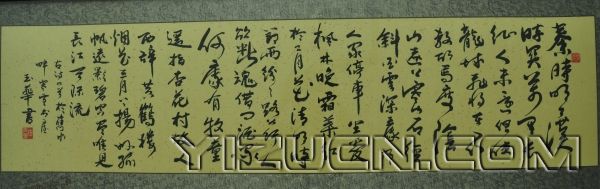 秦時明月漢
時關萬里長
征人未還但使
龍城飛將在不
教胡馬度陰
山遠上寒山石徑
斜白雲深處有
人家停車坐愛
楓林晚霜葉紅
於二月花清明時
節雨紛紛路上行人
欲斷魂借問酒家
何處有牧童
遙指杏花村故人
西辭黃鶴樓
烟花三月下揚州孤
帆遠影碧空盡唯見
長江天際流
玉華書
YIZUCN.COM